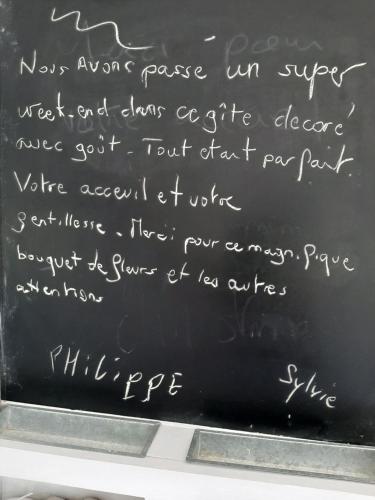 Nous Avons passé un super
week-end dans ce gîte decoré
avec goût - Tout etant parfait.
Votre acceuil et votre
gentillesse. Merci pour ce magnifique
bouquet de fleurs et les autres
attentions
PHILIPPE Sylvie